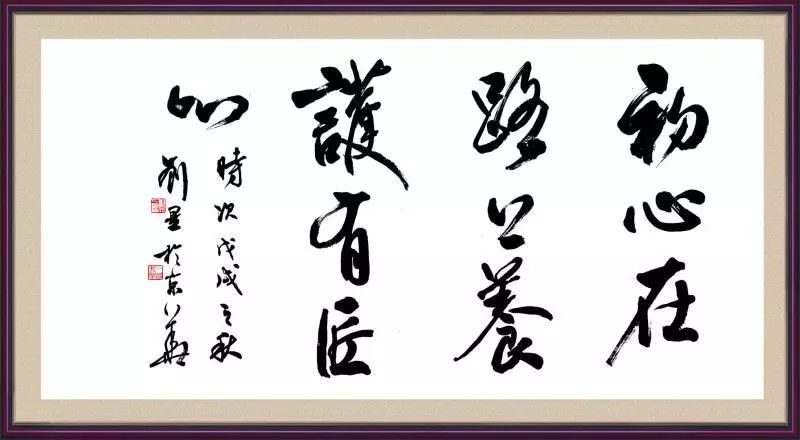 初心在
路上養
護有匠
心
時次戊戌之秋
劉星於京華